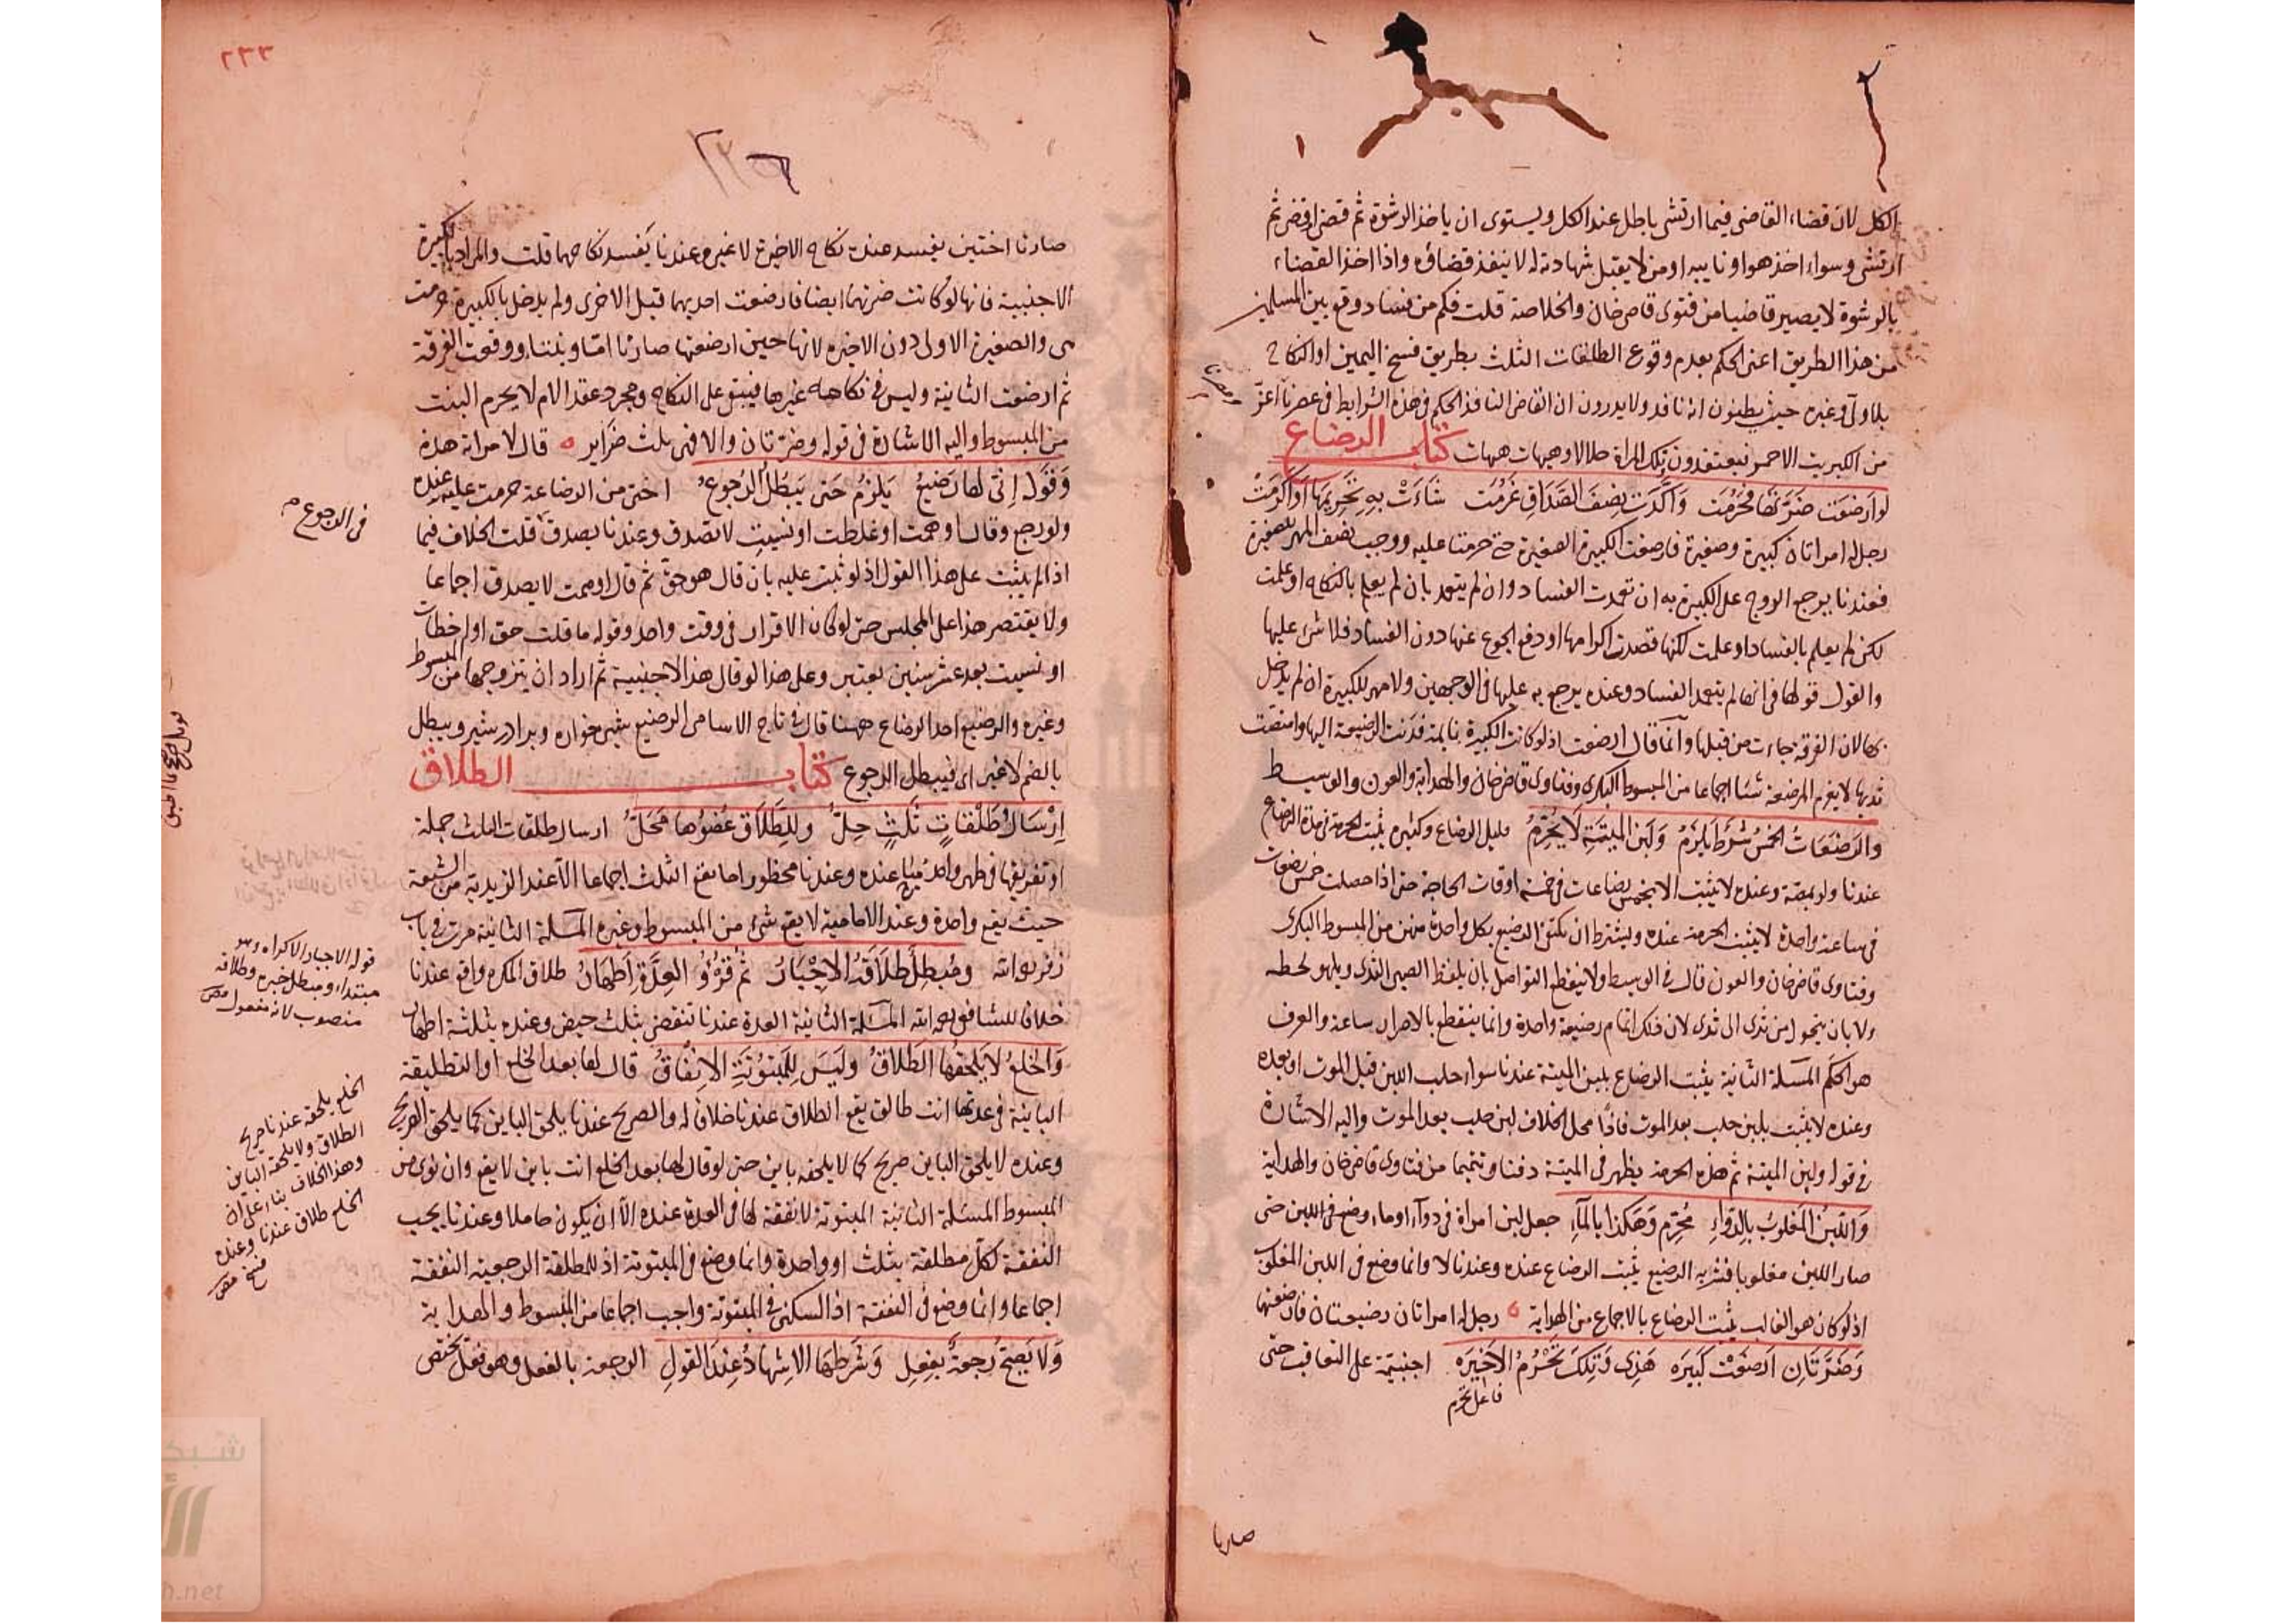 الكل لان قضاء القاضى فيما ارتشى باطل عند الكل ويستوى ان ياخذ الرشوة ثم قضى او قضى ثم
ارتشى وسواء اخذ هو او نايبه او من لا يقبل شهادته له لا ينفذ قضاؤه واذا اخذ القضاء
بالرشوة لا يصير قاضيا من فتوى قاضى خان والخلاصة قلت فكم من فساد وقع بين المسلمين
من هذا الطريق اعنى الحكم بعدم وقوع الطلقات الثلث بطريق فسخ اليمين او النكاح
بلا ولى وغيره حيث يظنون انه نافذ ولا يدرون ان القاضى النافذ الحكم فى هذه الشرايط فى عصرنا اعز
من الكبريت الاحمر فيعتقدون تلك المراة حلالا وهيهات هيهات كتاب الرضاع
لو ارضعت ضرتها فحرمت واكدت بنصف الصداق غرمت شاءت به تحريمها او اكرمت
رجل له امراتان كبيرة وصغيرة فارضعت الكبيرة الصغيرة حتى حرمتا عليه ووجب نصف المهر للصغيرة
فعندنا يرجع الزوج على الكبيرة به ان تعمدت الفساد وان لم يتعمد بان لم يعلم بالنكاح او علمت
لكن لم يعلم بالفساد او علمت لكنها قصدت اكرامها او دفع الجوع عنها دون الفساد فلا شىء عليها
والقول قولها فى انها لم يتعمد الفساد وعنده يرجع به عليها فى الوجهين ولا مهر للكبيرة ان لم يدخل
بها لان الفرقة جاءت من قبلها وانما قال ارضعت اذ لو كانت الكبيرة نايمة فدنت الرضيعة اليها وامتصت
ثديها لا يغرم المرضعة شيئا اجماعا من المبسوط البكرى وفتاوى قاضى خان والهداية والعون والوسيط
والرضعات الخمس شرط يلزم ولبن الميتة لا يحرم قليل الرضاع وكثيره يثبت الحرمة فى مدة الرضاع
عندنا ولو بمصة وعنده لا يثبت الا بخمس رضاعات فى خمسة اوقات الحاجة حتى اذا حصلت خمس رضعات
فى ساعة واحدة لا يثبت الحرمة عنده ويشترط ان يكتفى الرضيع بكل واحدة منهن من المبسوط البكرى
وفتاوى قاضى خان والعون قال فى الوسيط ولا ينقطع التواصل بان يلفظ الصبى الثدى ويلهو لحظة
ولا بان يتحول من ثدى الى ثدى لان ذلك اتمام رضيعة واحدة وانما ينقطع بالاضراب ساعة والعرف
هو الحكم المسئلة الثانية يثبت الرضاع بلبن الميتة عندنا سواء حلب اللبن قبل الموت او بعده
وعنده لا يثبت بلبن حلب بعد الموت فاذا محل الخلاف لبن حلب بعد الموت واليه الاشارة
فى قوله ولبن الميتة ثم هذه الحرمة يظهر فى الميتة دفنا وتيمما من فتاوى قاضى خان والهداية
واللبن المغلوب بالدواء محرم وهكذا بالماء جعل لبن امراة فى دواء او ماء وضع فى اللبن حتى
صار اللبن مغلوبا فشربه الرضيع يثبت الرضاع عنده وعندنا لا وانما وضع فى اللبن المغلوب
اذ لو كان هو الغالب يثبت الرضاع بالاجماع من الهداية رجل له امراتان رضيعتان فارضعتهما
وضرتان ارضعت كبيره هذى وتلك تحرم الاخيره اجنبية على التعاقب حتى
فاعل تحرم
صارتا
٢٣٣
صارتا اختين يفسد عنده نكاح الاخيرة لا غير وعندنا يفسد نكاحهما قلت والمراد بالكبيرة
الاجنبية فانها لو كانت ضرتهما ايضا فارضعت احديهما قبل الاخرى ولم يدخل بالكبيرة حرمت
هى والصغيرة الاولى دون الاخيرة لانها حين ارضعتها صارتا اما وبنتا ووقعت الفرقة
ثم ارضعت الثانية وليس فى نكاحه غيرها فيبقى على النكاح ومجرد عقد الام لا يحرم البنت
من المبسوط واليه الاشارة فى قوله وضرتان والا فهى ثلث ضراير قال لامراته هذه
وقوله انى لها رضيع يلزم حتى يبطل الرجوع اختى من الرضاعة حرمت عليه عنده
ولو رجع وقال اوهمت او غلطت او نسيت لا تصدق وعندنا يصدق قلت الخلاف فيما
اذا لم يثبت على هذا القول اذ لو ثبت عليه بان قال هو حق ثم قال اوهمت لا يصدق اجماعا
ولا يقتصر هذا على المجلس حتى لو كان الاقرار فى وقت واحد وقوله ما قلت حق او اخطات
او نسيت بعد عشر سنين يعتبر وعلى هذا لو قال هذا لاجنبية ثم اراد ان يتزوجها من المبسوط
وغيره والرضيع احد الرضاع ههنا قال فى تاج الاسامى الرضيع شير خواره وبرادر شير ويبطل
بالضم لا غير اى فيبطل الرجوع كتاب الطلاق
ارسال طلقات ثلث حل وللطلاق عضوها محل ارسال طلقات الثلث جملة
او تفريقها فى طهر واحد مباح عنده وعندنا محظور اما يقع الثلث اجماعا الا عند الزيدية من الشيعة
حيث يقع واحدة وعند الامامية لا يقع شىء من المبسوط وغيره المسئلة الثانية مرت فى باب
زفر رحمه الله ومبطل طلاقه الاجبار ثم قروؤ العدة اطهار طلاق المكره واقع عندنا
خلافا للشافعى رحمه الله المسئلة الثانية العدة عندنا تنقضى بثلث حيض وعنده بثلثة اطهار
والخلع لا يلحقها الطلاق وليس للمبتوتة الانفاق قال لها بعد الخلع او التطليقة
البائنة فى عدتها انت طالق يقع الطلاق عندنا خلافا له والصريح عندنا يلحق الباين كما يلحق الصريح
وعنده لا يلحق الباين صريح كما لا يلحقه باين حتى لو قال لها بعد الخلع انت باين لا يقع وان نوى من
المبسوط المسئلة الثانية المبتوتة لا نفقة لها فى العدة عنده الا ان يكون حاملا وعندنا يجب
النفقة لكل مطلقة بثلث او واحدة وانما وضع فى المبتوتة اذ للمطلقة الرجعية النفقة
اجماعا وانما وضع فى النفقة اذ السكنى فى المبتوتة واجب اجماعا من المبسوط والهداية
ولا يصح رجعة بفعل وشرطها الاشهاد عند القول الرجعة بالفعل وهو فعل يختص
فى الرجوع
قوله الاجبار الاكراه وهو
مبتداء ومبطل خبره وطلاقه
منصوب لانه مفعول
الخلع يلحقه عندنا صريح
الطلاق ولا يلحقه الباين
وهذا الخلاف بناء على ان
الخلع طلاق عندنا وعنده
فسخ